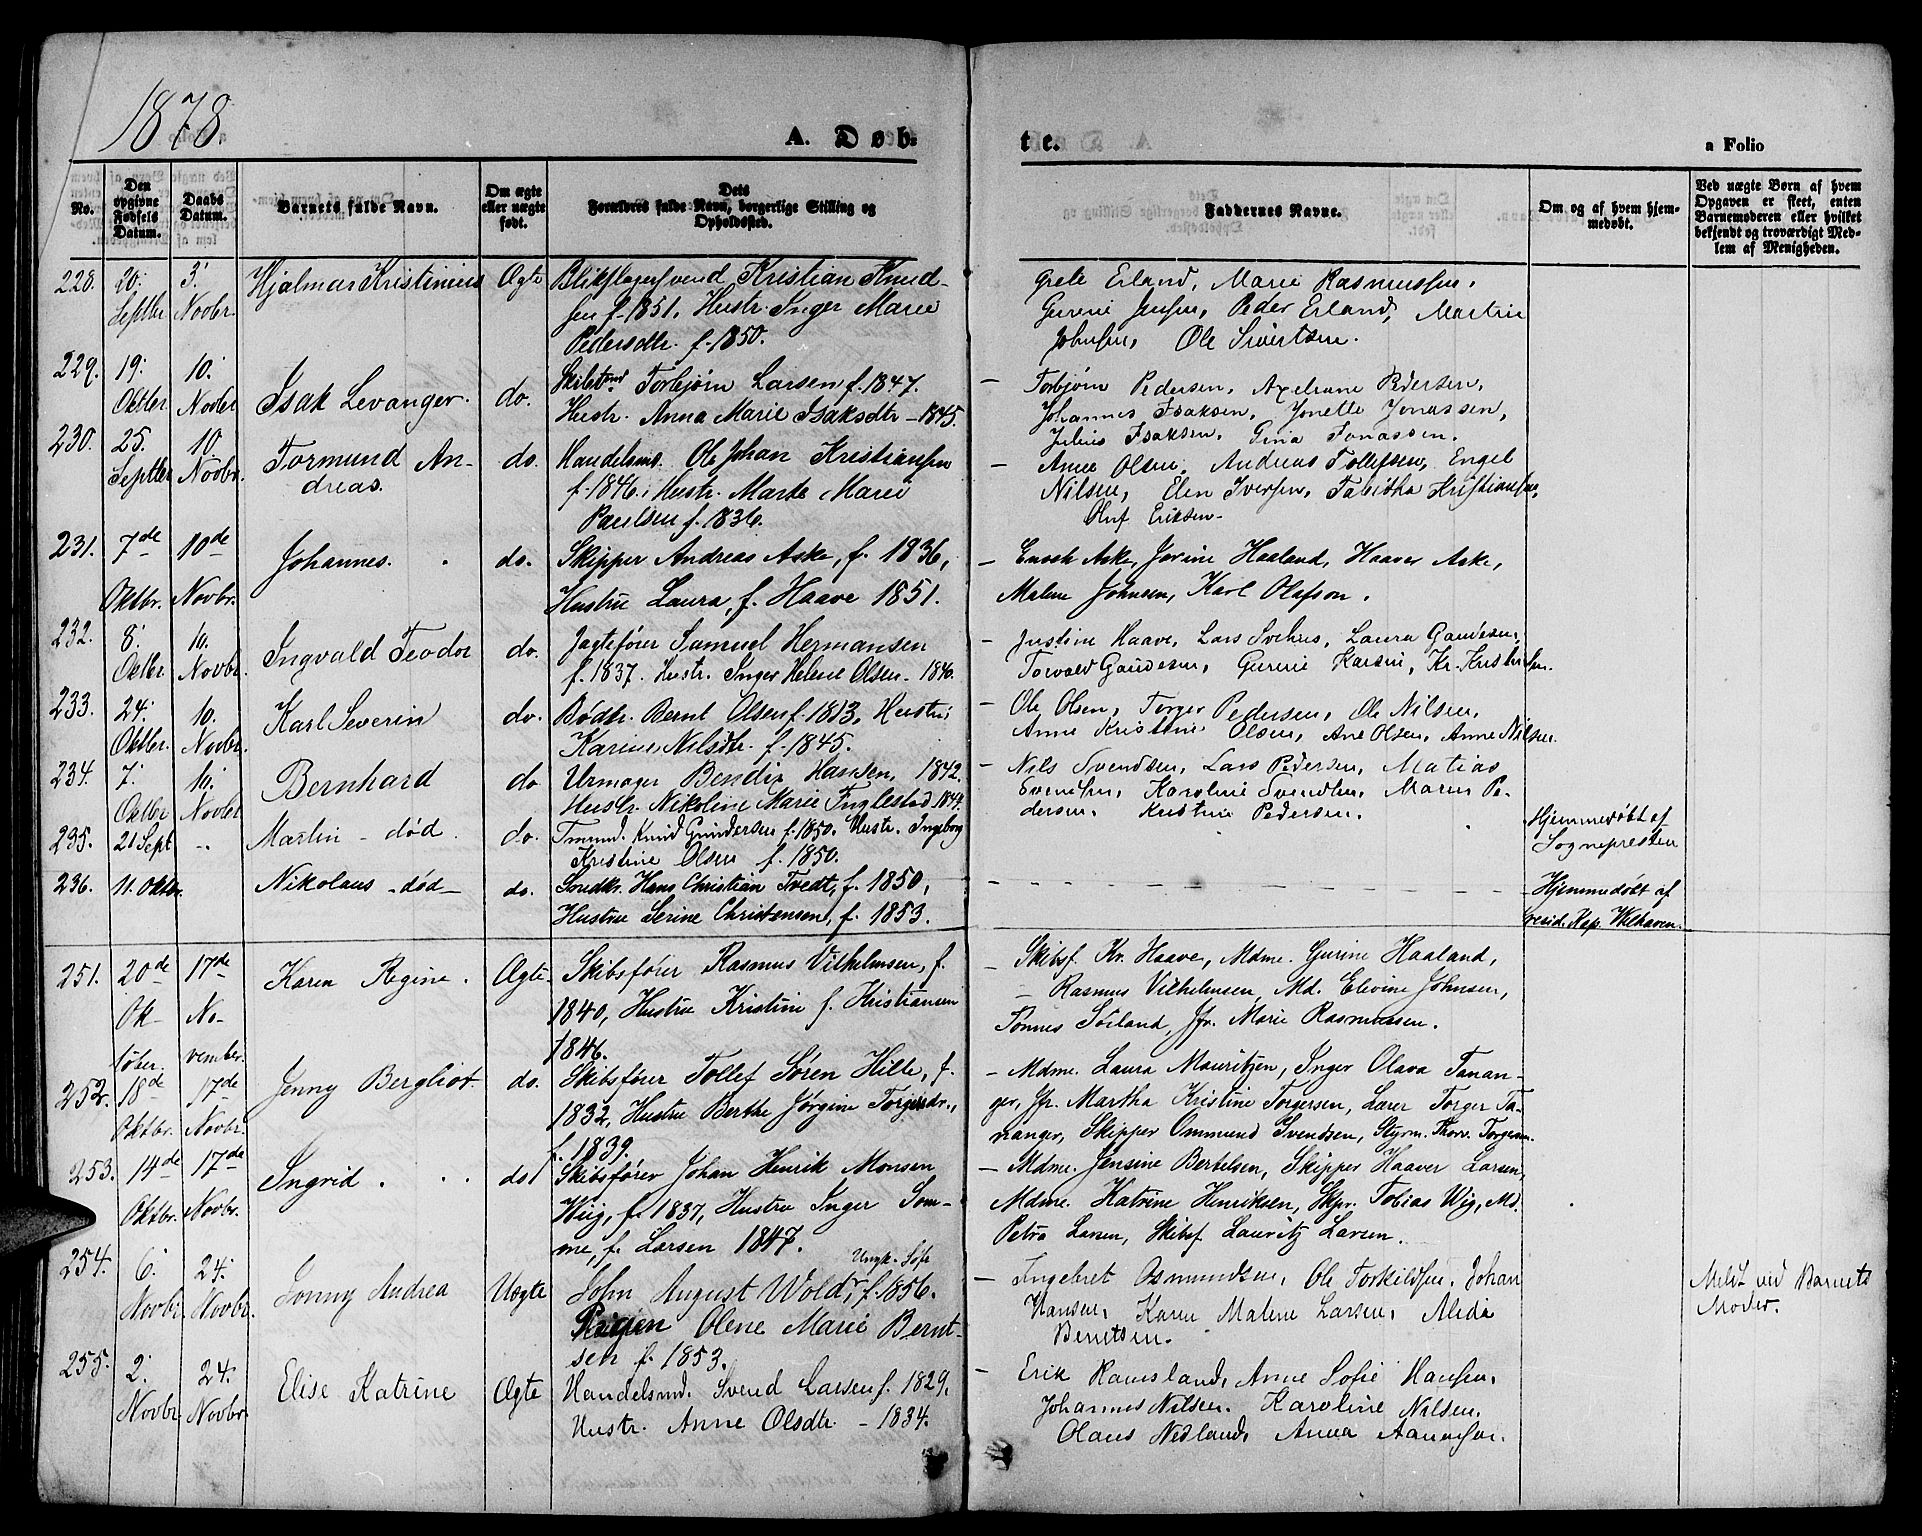 1878.
A. Døb-
te.
a Folio
No.
Den opgivne Fødsels Datum.
Daabs Datum.
Barnets fulde Navn.
Om ægte eller uægte født.
Dets Forældres fulde Navn, borgerlige Stilling og Opholdssted.
Faddernes Navne.
Om og af hvem hjemmedøbt.
Ved uægte Børn af hvem Opgaven er skeet, enten Barnemoderen eller hvilket bekjendt og troværdigt Medlem af Menigheden.
228. 20. Septbr 3. Novbr. Hjalmar Kristinius Ægte
Blikslagersvend Kristian Knud-
sen f. 1851. Hustr. Inger Marie
Pedersdtr. f. 1850.
Grete Erland, Marie Rasmussen,
Gurine Jensen, Peder Erland, Martin
Johnsen, Ole Sivertsen.
229. 19. Oktbr 10. Novbr Isak Levanger. do.
Torbjørn Larsen f. 1847.
Hustr. Anna Marie Isaksdtr - 1845.
- Torbjørn Pedersen, Axeliane Pedersen,
Johannes Isaksen, Jonette Jonassen,
Julius Isaksen. Gina Jonassen.
230. 25. Septbr 10. Novbr. Tormund An-
dreas. do.
Handelsm. Ole Johan Kristiansen
f. 1846. Hustr. Marte Marie
Paulsen f. 1836.
- Anne Olsen, Andreas Tollefsen, Engel
Nilsen, Elen Iversen, Tabitha Kristiansen,
Oluf Eriksen.
231. 7de Oktbr. 10de Novbr. Johannes. do.
Skipper Andreas Aske, f. 1836,
Hustru Laura, f. Haave 1851.
- Enoch Aske, Jorine Haaland, Haaver Aske,
Malene Johnsen, Karl Olafson.
232. 8. Octbr. 10. Novbr. Ingvald Teodor do.
Jagtefører Samuel Hermansen
f. 1837. Hustr. Inger Helene Olsen - 1840.
- Justine Haave, Lars Svehus, Laura Gaudesen,
Torvald Gaudesen, Gurine Karsin, Kr. Kristensen.
233. 24. Oktbr. 10. Novbr. Karl Severin do.
Bødkr. Bernt Olsen f. 1813, Hustr.
Karine Nilsdtr. f. 1845.
- Ole Olsen, Torger Pedersen, Ole Nilsen,
Anne Kristine Olsen, Ane Olsen, Anne Nilsen.
234. 7. Octbr 10. Novbr Bernhard do
Urmager Bendix Hansen, 1842.
Hustr. Nikoline Marie Fuglestad 1844.
- Nils Svendsen, Lars Pedersen, Matias
Svendsen, Karoline Svendsen, Maren Pe-
dersen. Kristine Pedersen.
235. 21 Sept " Martin - død. do.
Tmrmd. Knud Gundersen f. 1850. Hustr. Ingeborg
Kristine Olsen f. 1850.
Hjemmedøbt af
Sognepresten
236. 11. Oktbr. Nikolaus - død - do.
Hans Christian Tvedt, f. 1850,
Hustru Serine Christensen, f. 1853.
- Hjemmedøbt af
resid. Kap. Welhaven.
251. 20de Ok-
tober 17de No-
vember. Karen Regine. Ægte.
Skibsfører Rasmus Vilhelmsen, f.
1840, Hustru Kristine f. Kristiansen
1846.
- Skibsf. Kr. Haave, Mdme. Gurine Haaland,
- Rasmus Vilhelmsen, Md. Elevine Johnsen,
Tønnes Sørland, Jfr. Marie Rasmussen.
252. 18de Oktbr. 17de Novbr. Jenny Bergliot do.
Skibsfører Tollef Søren Hille, f.
1832, Hustru Berthe Jørgine Torgersdr.,
f. 1839.
- Mdme. Laura Mauritzen, Inger Olava Tanan-
ger, Jfr. Martha Kristine Torgersen, Lærer Torger Ta-
nanger, Skipper Ommund Svendsen, Styrm. Thorv. Torgersen.
253. 14de Oktbr. 17de Novbr. Ingrid. do.
Skibsfører Johan Henrik Monsen
Wiig, f. 1837, Hustru Inger Som-
me, f. Larsen 1847.
- Mdme. Jensine Bertelsen, Skipper Haaver Larsen,
Mdme. Katrine Henriksen, Skpr. Tobias Wig, Md.
Petra Larsen, Skibsf. Lauritz Larsen.
254. 6. Novbr. 24. Novbr. Jonny Andrea Uægte
Ungk.
John August Wold, f. 1856.
Pigen Olene Marie Bernt-
sen f. 1853.
- Ingebret Osmundsen, Ole Torkildsen, Johan
Hansen, Karen Malene Larsen, Alida
Berntsen.
Meldt ved Barnets
Moder.
255. 2. Novbr 24. Novbr. Elise Katrine Ægte
Handelsmd. Svend Larsen f. 1829.
Hustr. Anne Olsdtr. - 1834.
- Erik Ramsland, Anne Sofie Hansen,
Johannes Nilsen. Karoline Nilsen.
Olaus Nedland, Anna Aanensen.